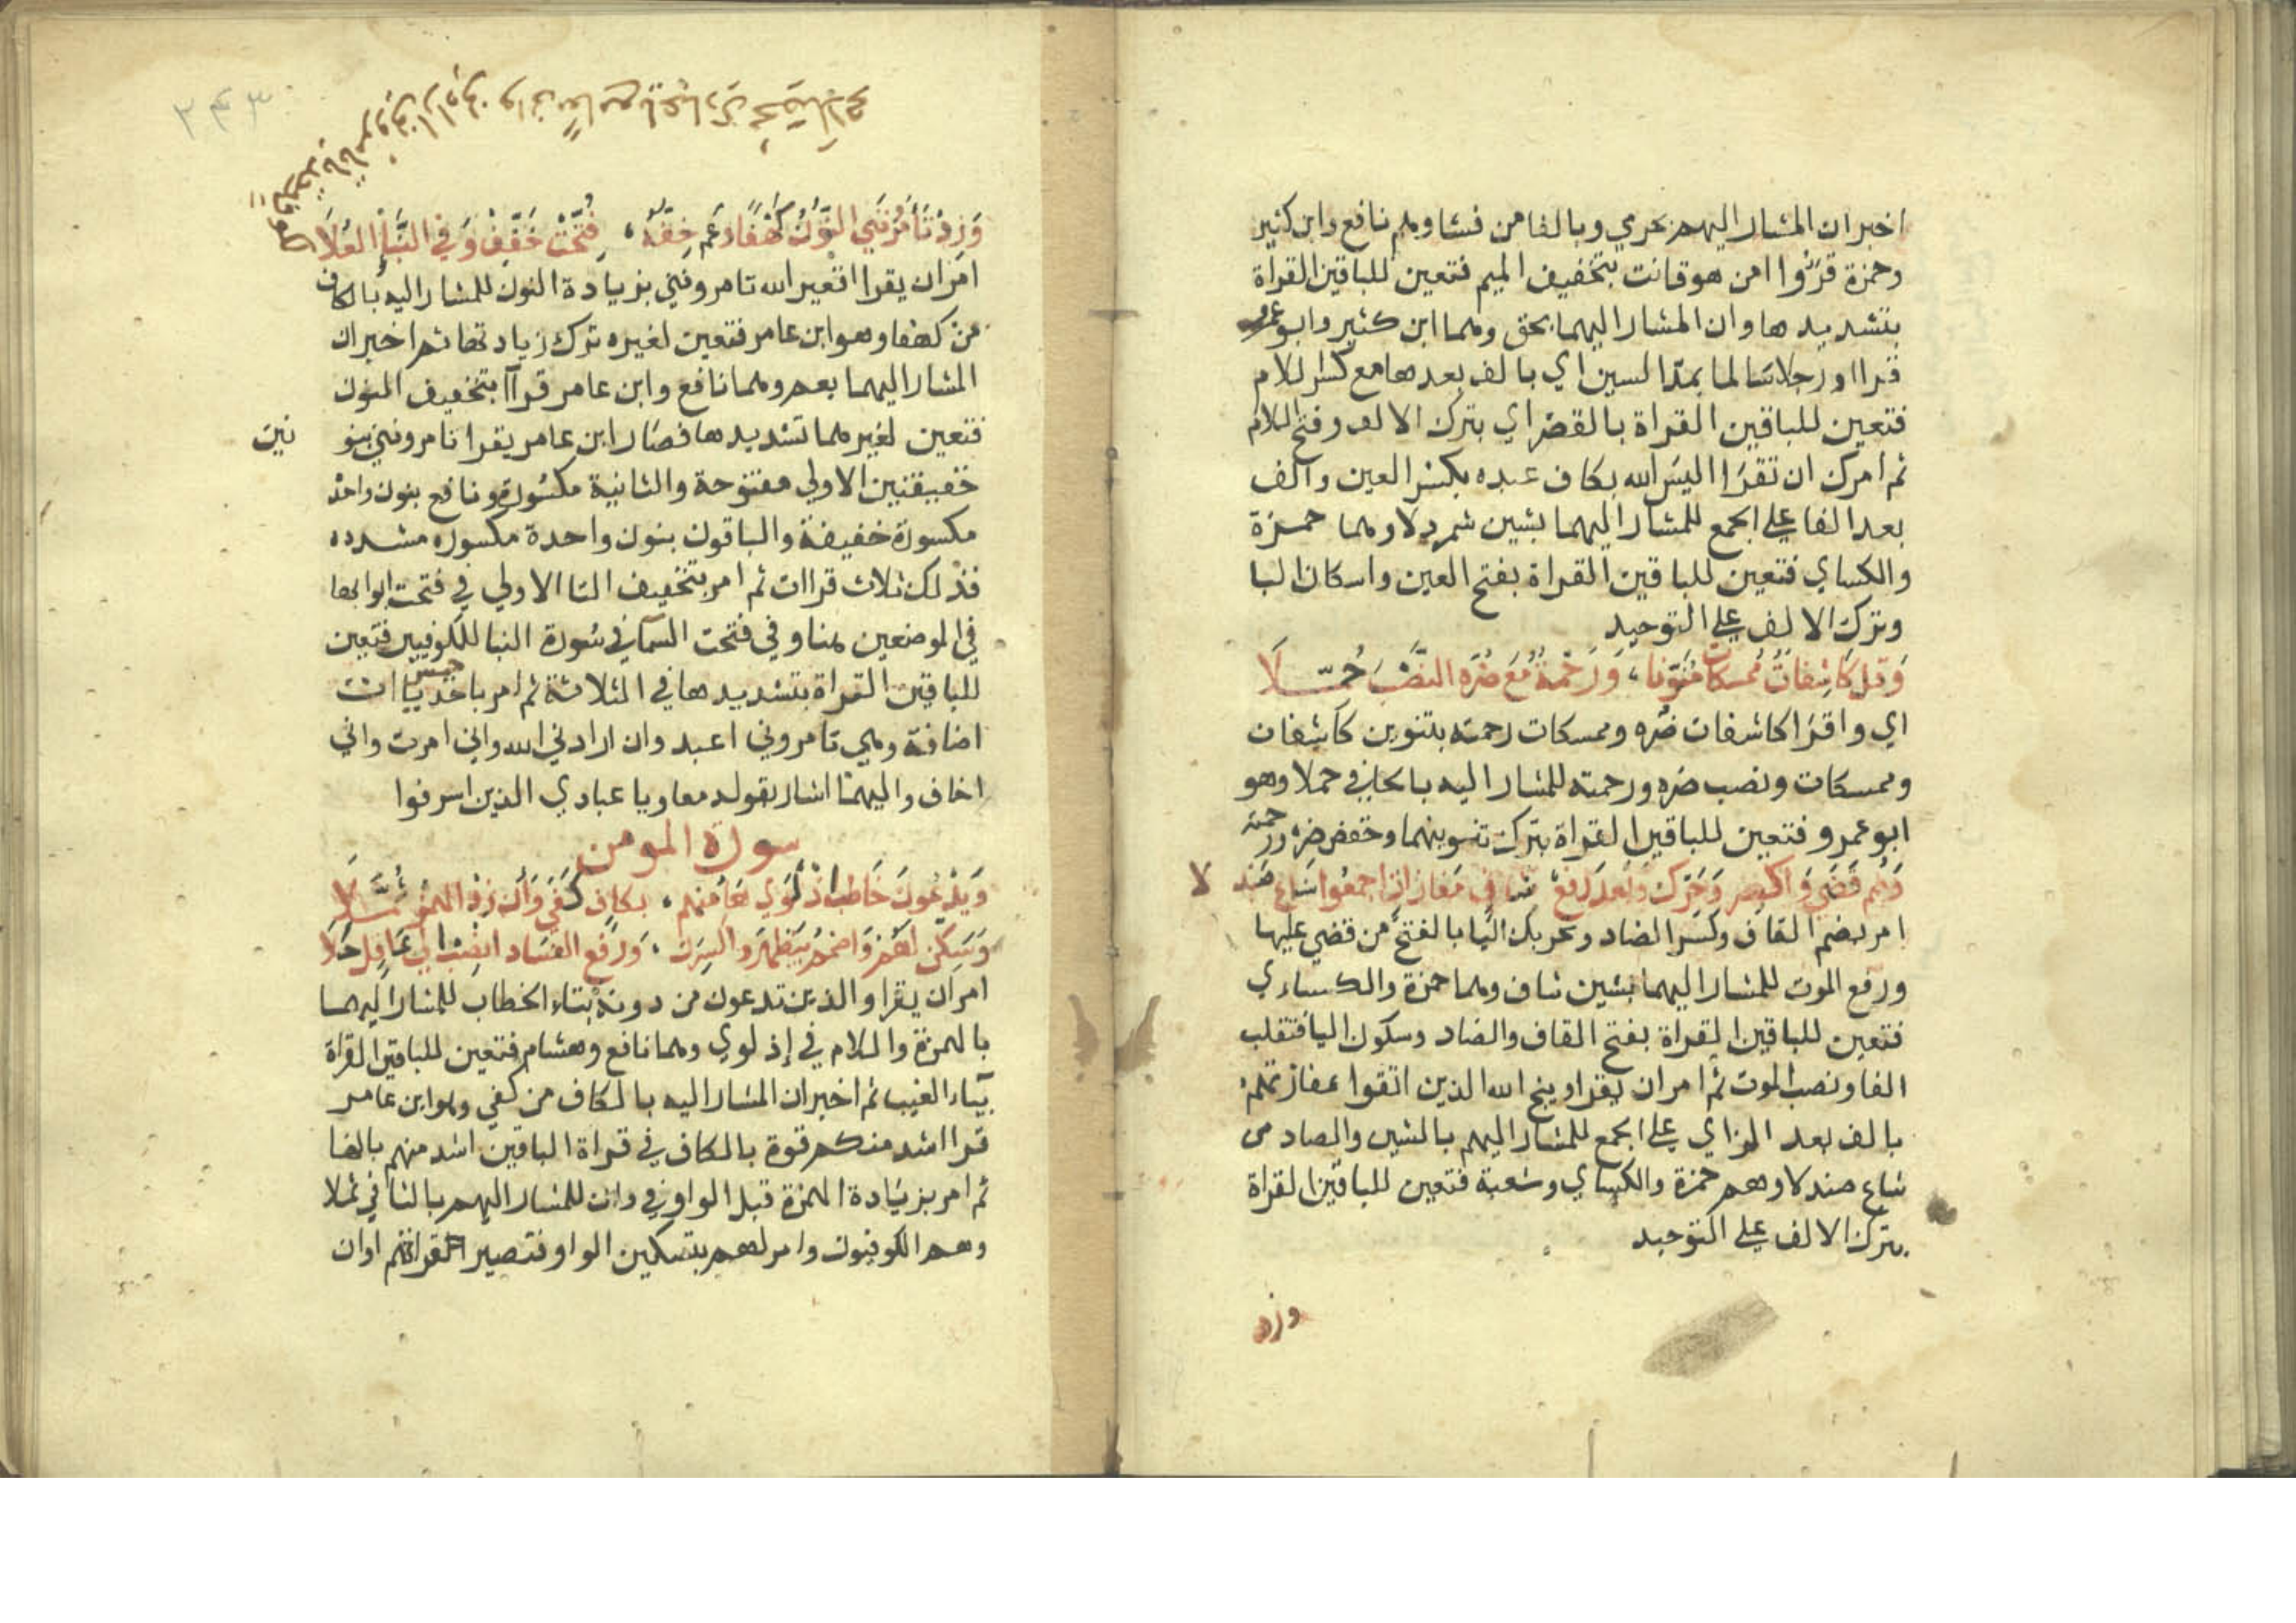 اخبر ان المشار اليهم بحرمي وبالفا من فشا وهم نافع وابن كثير
وحمزة قرؤا امن هو قانت بتخفيف الميم فتعين للباقين القراة
بتشديدها وان المشار اليهما بحق وهما ابن كثير وابو عمرو
قراا ورجلا سالما بمد السين اي بالف بعدها مع كسر اللام
فتعين للباقين القراة بالقصر اي بترك الالف وفتح اللام
ثم امرك ان تقرا اليس الله بكاف عبده بكسر العين والف
بعد الفا على الجمع للمشار اليهما بشين شمردلا وهما حمزة
والكساي فتعين للباقين القراة بفتح العين واسكان البا
وترك الالف على التوحيد
وَقل كَاشِفَاتُ مُمسكات مُنَوِّنا، وَرَحْمَة مَعَ ضُرِّه النَّصْبَ حُمِّـلَا
اي واقرا كاشفات ضره وممسكات رحمته بتنوين كاشفات
وممسكات ونصب ضره ورحمته للمشار اليه بالحا في حملا وهو
ابو عمرو فتعين للباقين القراة بترك تنوينهما وخفض ضره ورحمته
وَضُم قَضَى وَاكسِر وَحَرّك وَبَعدَ رَفع شاف مَفازات اجمعُوا شَاع صَندلا
امر بضم القاف وكسر الضاد وتحريك اليا بالفتح من قضي عليها
ورفع الموت للمشار اليهما بشين شاف وهما حمزة والكساءي
فتعين للباقين القراة بفتح القاف والضاد وسكون اليا فتقلب
الفا ونصب الموت ثم امر ان يقرا وينجي الله الذين اتقوا بمفازتهم
بالف بعد الزاي على الجمع للمشار اليهم بالشين والصاد من
شاع صندلا وهم حمزة والكساي وشعبة فتعين للباقين القراة
بترك الالف على التوحيد
وزد
٢٤٣
وَزِدْ تَأمُرُنِّي النُّونَ كَهْفًا وَعَمّ خِفُّهُ، فُتِّحَتْ خَفِّفْ وَفِي النَّبَإِ العُلَا
امر ان يقرا افغير الله تامروني بزيادة النون للمشار اليه بالكاف
من كهفا وهو ابن عامر فتعين لغيره ترك زيادتها ثم اخبر ان
المشار اليهما بعم وهما نافع وابن عامر قرآا بتخفيف النون
فتعين لغيرهما تشديدها فصار ابن عامر يقرا تامرونني بنو نين
خفيفتين الاولي مفتوحة والثانية مكسورة ونافع بنون واحدة
مكسورة خفيفة والباقون بنون واحدة مكسوره مشدده
فذلك ثلاث قراات ثم امر بتخفيف التا الاولي في فتحت ابوابها
في الموضعين هنا وفي فتحت السما في سورة النبا للكوفيين فتعين
للباقين القراة بتشديدها في الثلاثة ثم امر باخذ خمس ياات
اضافة وهي تامروني اعبد وان ارادني الله واني امرت واني
اخاف واليهما اشار بقوله معا ويا عبادي الذين اسرفوا
سورة المومن
وَيَدْعُونَ خَاطِب إذْ لَوَى هَاءُ مِنهم، بكافٍ كَفَى وَأَن زِدْ الهَمْزَ ثُمَّـلَا
وَسَكِّن لَهُم وَاضمُم بِيَظْهَرَ وَاكسِرَن، وَرَفْعَ الفَسَادَ انصِبْ إِلَى عَاقِلٍ حَلَا
امر ان يقرا والذين تدعون من دونه بتاء الخطاب للمشار اليهما
بالهمزة واللام في إذ لوي وهما نافع وهشام فتعين للباقين القراة
بياء الغيب ثم اخبر ان المشار اليه بالكاف من كفي وهو ابن عامر
قرا اشد منكم قوة بالكاف في قراة الباقين اشد منهم بالها
ثم امر بزيادة الهمزة قبل الواو في وان للمشار اليهم بالثا في ثملا
وهم الكوفيون وامر لهم بتسكين الواو فتصير القراتهم او ان